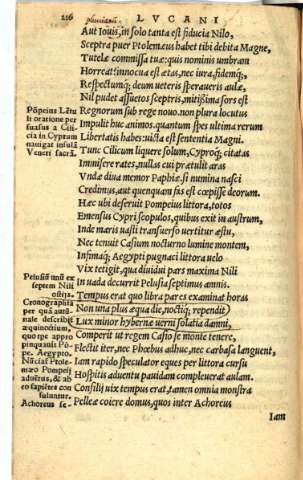 226 LVCANI
Aut Iouis, in solo tanta est fiducia Nilo,
Sceptra puer Ptolemæus habet tibi debita Magne,
Tutelæ commissa tuæ: quis nominis umbram
Horreat: innocua est ætas, nec iura, fidemq́;
Respectumq́; deum ueteris speraueris aulæ,
Nil pudet assuetos sceptris, mitissima sors est
Pōpeius Lētu Regnorum sub rege nouo. non plura locutus
li oratione per Impulit huc animos. quantum spes ultima rerum
suasus a Cili Libertatis habes: uicta est sententia Magni.
cia in Cyprum Tunc Cilicum liquere solum, Cyproq́; citatas
nauigat insulā Immisere rates, nullas cui prætulit aras
Veneri sacrā. Vndæ diua memor Paphiæ. si numina nasci
Credimus, aut quenquam fas est cœpisse deorum.
Hæc ubi deseruit Pompeius littora, totos
Emensus Cypri scopulos, quibus exit in austrum,
Inde maris uasti transuerso uertitur æstu,
Nec tenuit Casium nocturno lumine montem,
Infimaq́; Aegypti pugnaci littora uelo
Vix tetigit, qua diuidui pars maxima Nili
In uada decurrit Pelusia septimus amnis.
septem Nili
ostia.
Cronographia Tempus erat quo libra pares examinat horas
Non una plus æqua die, noctiq́; rependit
Lux minor hybernæ uerni solatia damni,
æquinoctium, Comperit ut regem Casio se monte tenere,
Flectit iter, nec Phœbus adhuc, nec carbasa languent,
pe. Aegypto. Iam rapido speculator eques per littora cursu
Hospitis aduentu pauidam compleuerat aulam.
Consilij uix tempus erat, tamen omnia monstra
Achoreus se- Pelleæ coiere domus, quos inter Achoreus
Iam